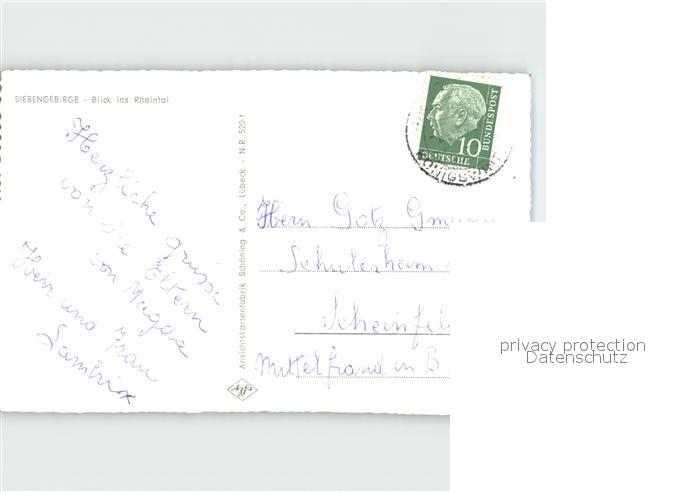 SIEBENGEBIRGE - Blick ins Rheintal
Herzliche Grüsse
von die Eltern
von Magda
Herr und Frau
Ansichtskartenfabrik Schöning & Co., Lübeck - N.R. 520-1
10
DEUTSCHE
BUNDESPOST
Herrn Gotz
Schulerheim
Scheinfel
Mittelfrand in B
privacy protection
Datenschutz